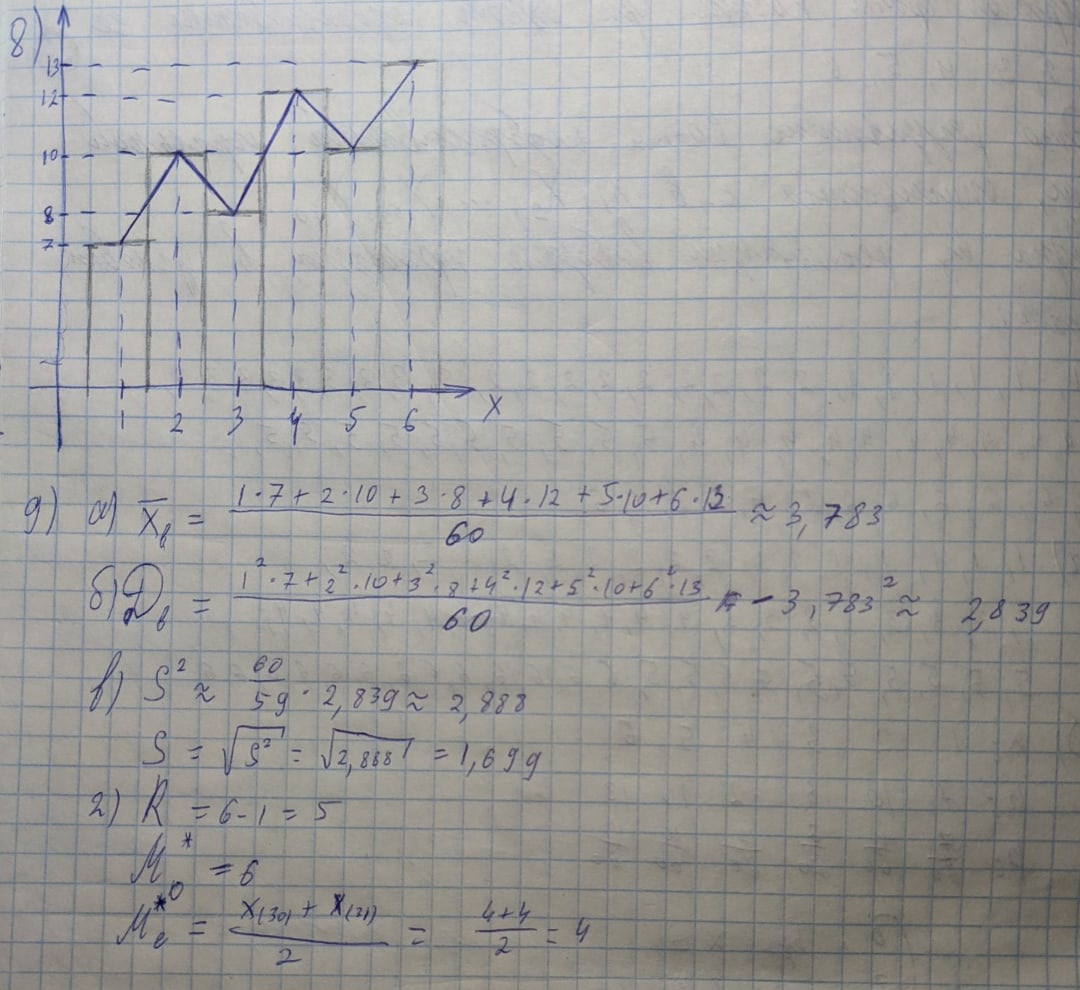 8)
13
12
10
8
7
1 2 3 4 5 6 X
9) а) x̄в = (1·7 + 2·10 + 3·8 + 4·12 + 5·10 + 6·13)/60 ≈ 3,783
б) Dв = (1²·7 + 2²·10 + 3²·8 + 4²·12 + 5²·10 + 6²·13)/60 - 3,783² ≈ 2,839
в) S² ≈ 60/59 · 2,839 ≈ 2,888
S = √S² = √2,888 = 1,699
г) R = 6-1 = 5
M₀* = 6
Me* = (x(30) + x(31))/2 = (4+4)/2 = 4